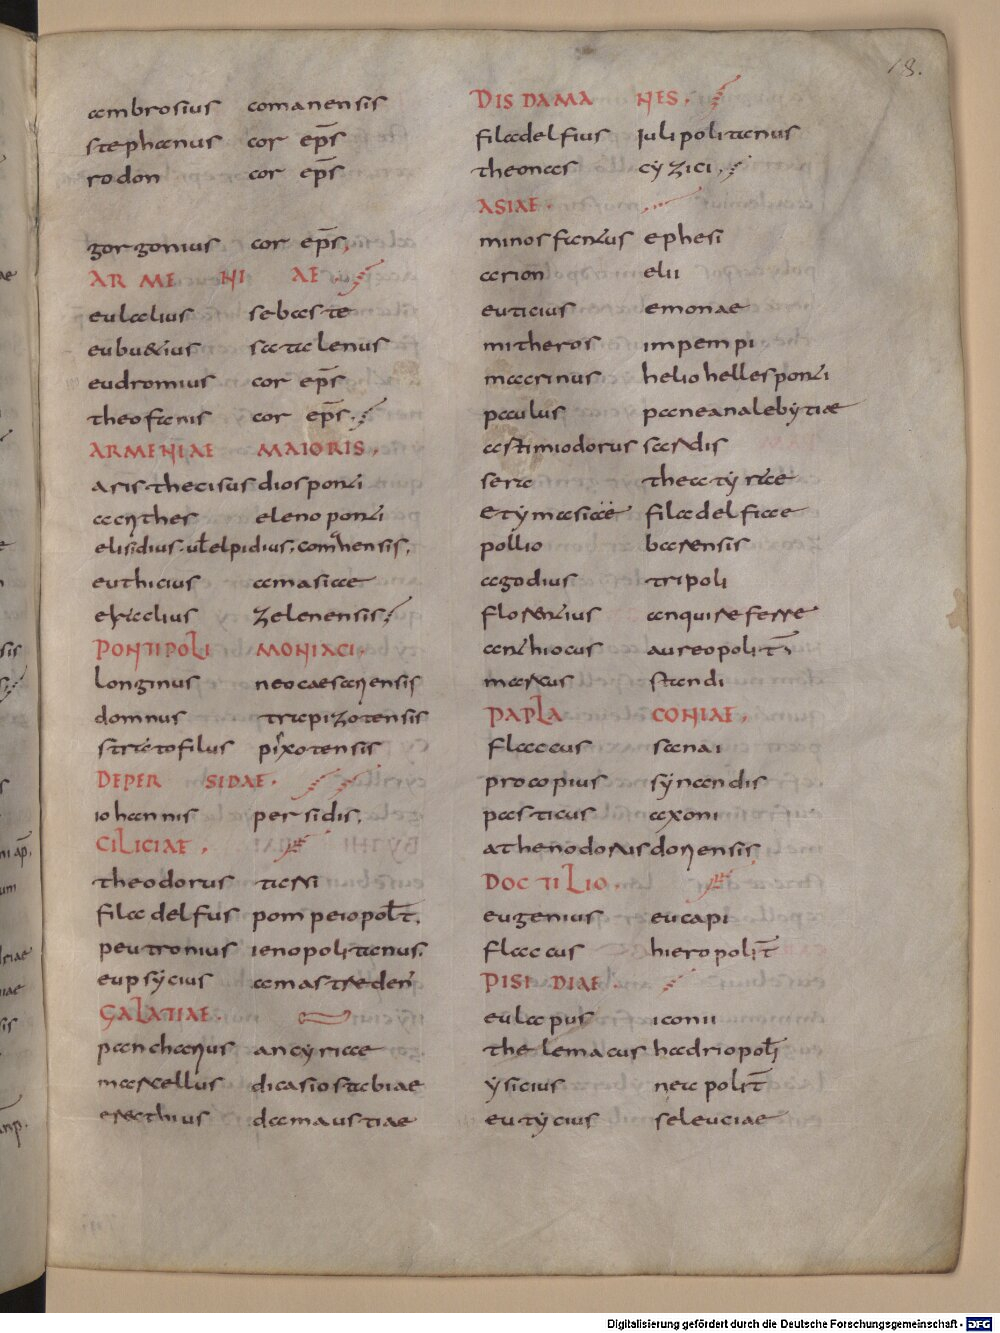 18.
ambrosius comanensis
stephanus cor ep̅s
rodon cor ep̅s
gorgonius cor ep̅s,
AR ME NI AE
eulalius sebaste
eubu&ius satalenus
eudromius cor ep̅s
theofanis cor ep̅s.
ARMENIAE MAIORIS.
aristhecisus diosponti
acrithes elenoponti
elisidius·ul̅elpidius·comanensis.
euthicius amasiae
eraclius zelenensis
PONTIPOLI MONIACI.
longinus neocaesarensis
domnus trapizotensis
stratofilus pixotensis
DEPER SIDAE.
iohannis persidis.
CILICIAE.
theodorus tarsi
filadelfus pompeiopol̅t.
peutronius ienopolitanus.
eupsycius amastreden̅
GALATIAE.
pancharius ancyriae
marcellus dicasiostabiae
erecthius damaustiae
DIS DAMA NES.
filadelfius iulipolitanus
theonas cyzici.
ASIAE.
minosfantus ephesi
arion elii
euticius emonae
mitheros impempi
macrinus heliohellesponti
paulus paneanalebytiae
astimiodorus sardis
sera theatyrae
etymasiae filadelfiae
pollio barensis
agodius tripoli
florentius anquireferre
anthiocus aureopolit̅
marcus standi
PAPLA CONIAE.
flaccus sanai
procopius synandis
pasticus axoni
athenodorus dorensis
DOC TILIO.
eugenius eucapi
flaccus hieropolit̅
PISI DIAE.
eulapus iconii
thelemacus hadriopol̅i
ysicius neapolit̅
eutycius seleuciae
Digitalisierung gefördert durch die Deutsche Forschungsgemeinschaft - DFG